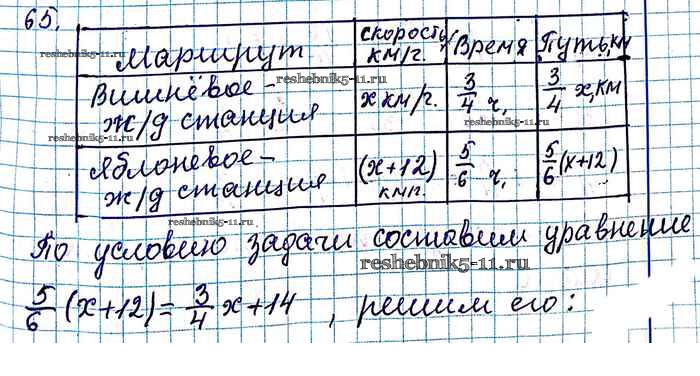 65.
Маршрут | скорость, км/г. | Время | Путь, км
Вишнёвое - ж/д станция | х км/г. | 3/4 ч, | 3/4 х, км
Яблоневое - ж/д станция | (х+12) км/г. | 5/6 ч, | 5/6 (х+12)
По условию задачи составим уравнение
5/6 (х+12) = 3/4 х + 14 , решим его:
reshebnik5-11.ru
reshebnik5-11.ru
reshebnik5-11.ru
reshebnik5-11.ru
reshebnik5-11.ru